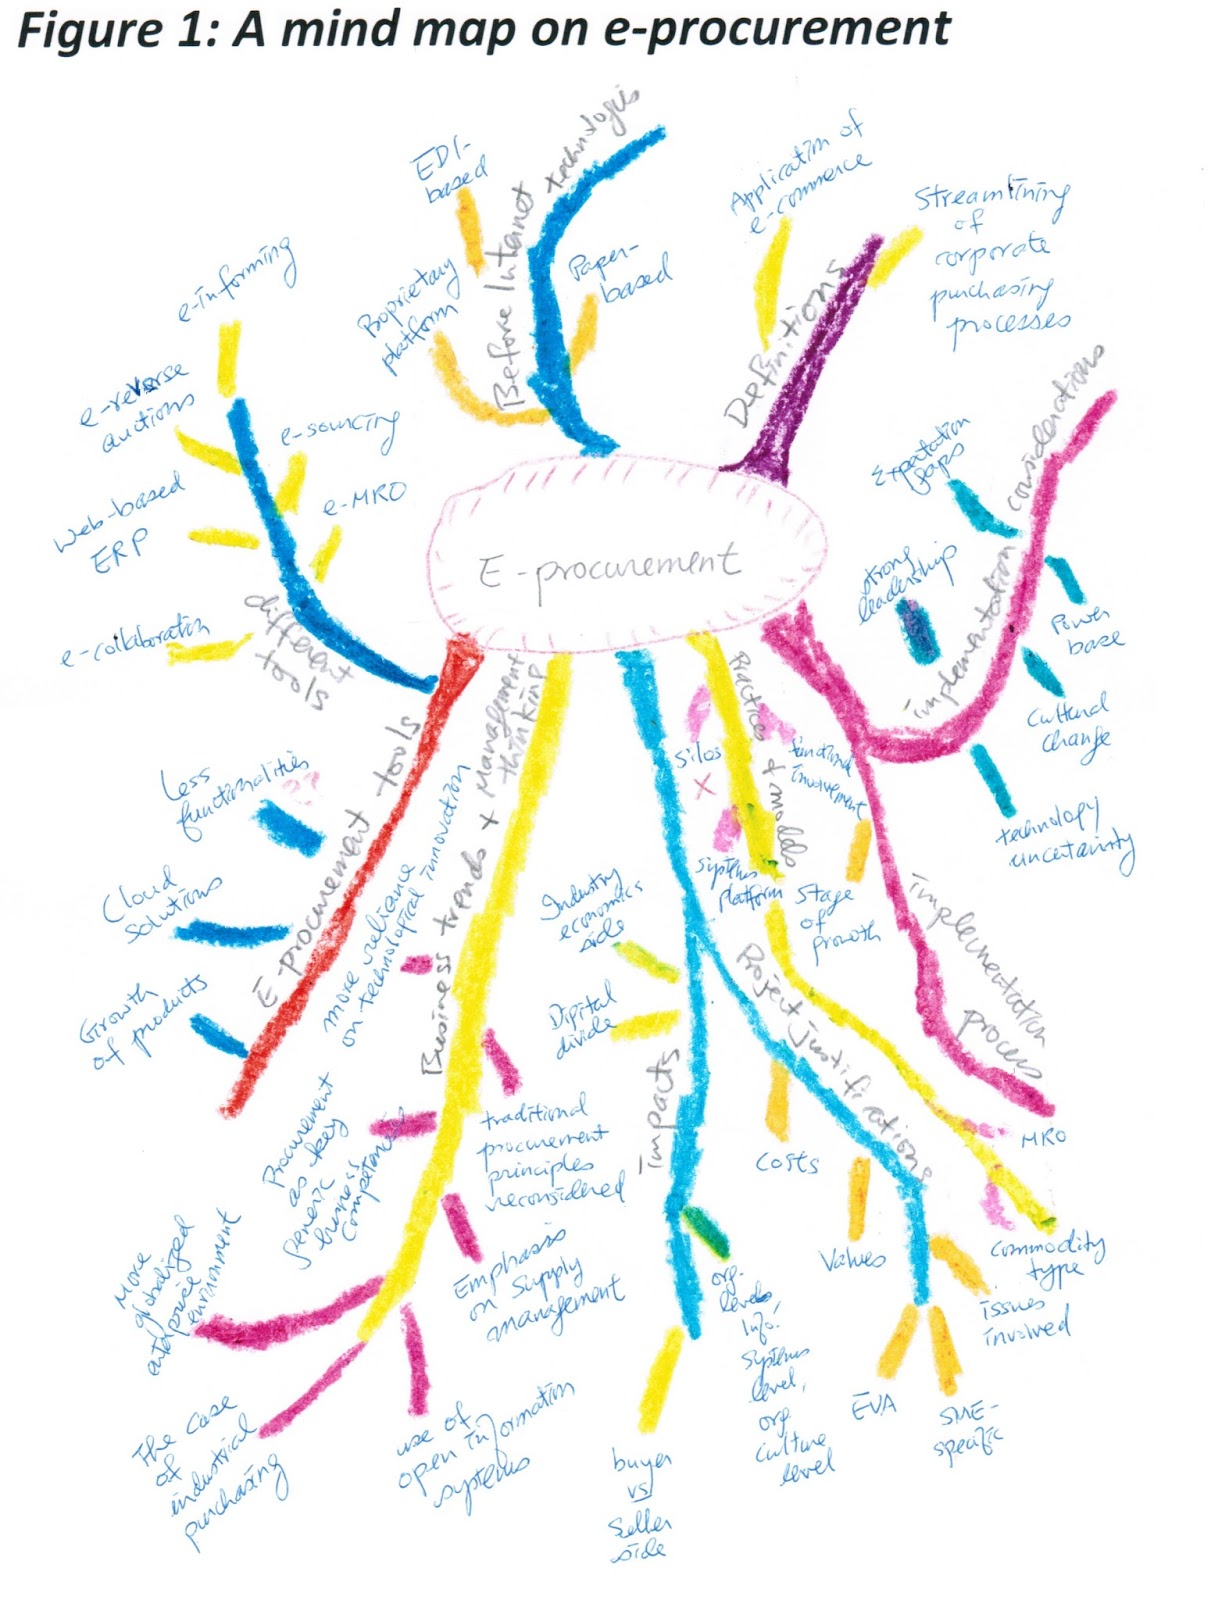 Figure 1: A mind map on e-procurement
E-procurement
Before Internet technologies
EDI-
based
Proprietary
platform
Paper-
based
Definitions
Application of
e-commerce
Streamlining
of
corporate
purchasing
processes
implementation considerations
Expectation
gaps
strong
leadership
Power
base
Cultural
change
technology
uncertainty
implementation
process
Practices & models
Silos
X
functional
involvement
Systems
platform
Stage
of
growth
MRO
Commodity
type
Project justifications
Costs
Values
issues
involved
EVA
SME-
specific
impacts
Industry
economic
side
Digital
divide
org.
levels
Info.
systems
level,
org
culture
level
buyer
vs
Seller
side
Business trends & Management
thinking
more reliance
on technological innovation
traditional
procurement
principles
reconsidered
Procurement
as key
generic
business
Competencies
Emphasis
on Supply
management
More
globalized
enterprise
environment
The case
of
industrial
purchasing
use of
open information
systems
E-procurement tools
Less
functionalities
??
Cloud
Solutions
Growth
of products
different
tools
e-informing
e-reverse
auctions
e-sourcing
Web-based
ERP
e-MRO
e-collaboration